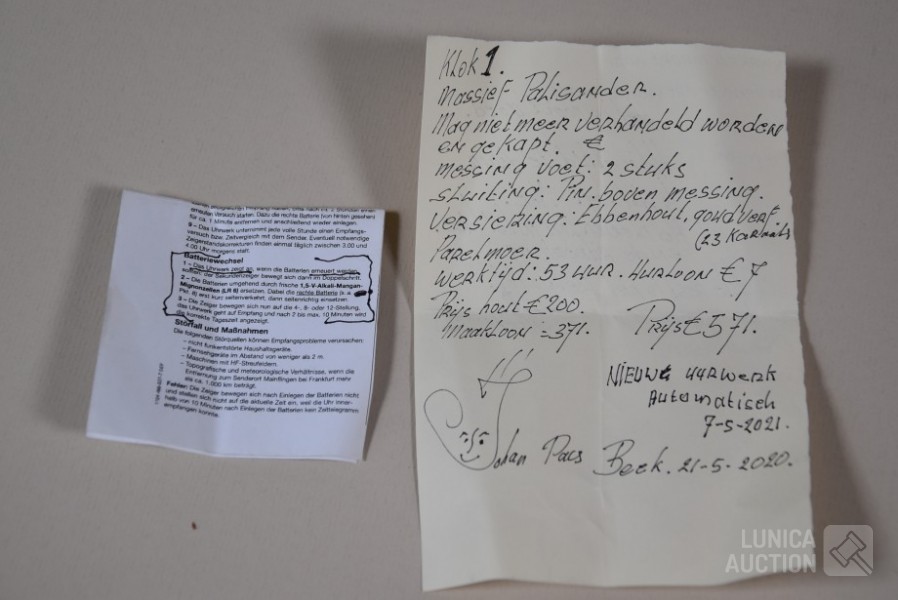 Klok 1.
Massief Palisander.
Mag niet meer verhandeld worden
en gekapt. €
messing voet: 2 stuks
sluiting: Pin. boven messing.
versiering: Ebbenhout, goudverf.
(23 Karaats)
Parelmoer.
werktijd: 53 uur. uurloon € 7
Prijs hout € 200.
maakloon = 371.
Prijs € 571.
NIEUW uurwerk
Automatisch
7-5-2021.
Johan Paes
Beek. 21-5-2020.
für ca. 1 Minute entfernen und anschließend wieder einlegen.
9 – Das Uhrwerk unternimmt jede volle Stunde einen Empfangs-
versuch bzw. Zeitvergleich mit dem Sender. Eventuell notwendige
Zeigerstandskorrekturen finden einmal täglich zwischen 3.00 und
4.00 Uhr morgens statt.
Batteriewechsel
1 – Das Uhrwerk zeigt an, wenn die Batterien erneuert werden
der Sekundenzeiger bewegt sich dann im Doppelschritt.
2 – Die Batterien umgehend durch frische 1,5-V-Alkali-Mangan-
Mignonzellen (LR 6) ersetzen. Dabei die rechte Batterie (s. a.
erst kurz seitenverkehrt, dann seitenrichtig einsetzen
3 – Die Zeiger bewegen sich nun auf die 4-, 8- oder 12-Stellung,
das Uhrwerk geht auf Empfang und nach 2 bis max. 10 Minuten wird
die korrekte Tageszeit angezeigt.
Störfall und Maßnahmen
Die folgenden Störquellen können Empfangsprobleme verursachen:
– nicht funkentstörte Haushaltsgeräte.
– Fernsehgeräte im Abstand von weniger als 2 m.
– Maschinen mit HF-Streufeldern.
– Topografische und meteorologische Verhältnisse, wenn die
Entfernung zum Senderort Mainflingen bei Frankfurt mehr
als ca. 1.000 km beträgt.
Fehler: Die Zeiger bewegen sich nach Einlegen der Batterien nicht
und stellen sich nicht auf die aktuelle Zeit ein, weil die Uhr inner-
halb von 10 Minuten nach Einlegen der Batterien kein Zeittelegramm
empfangen konnte.
LUNICA
AUCTION